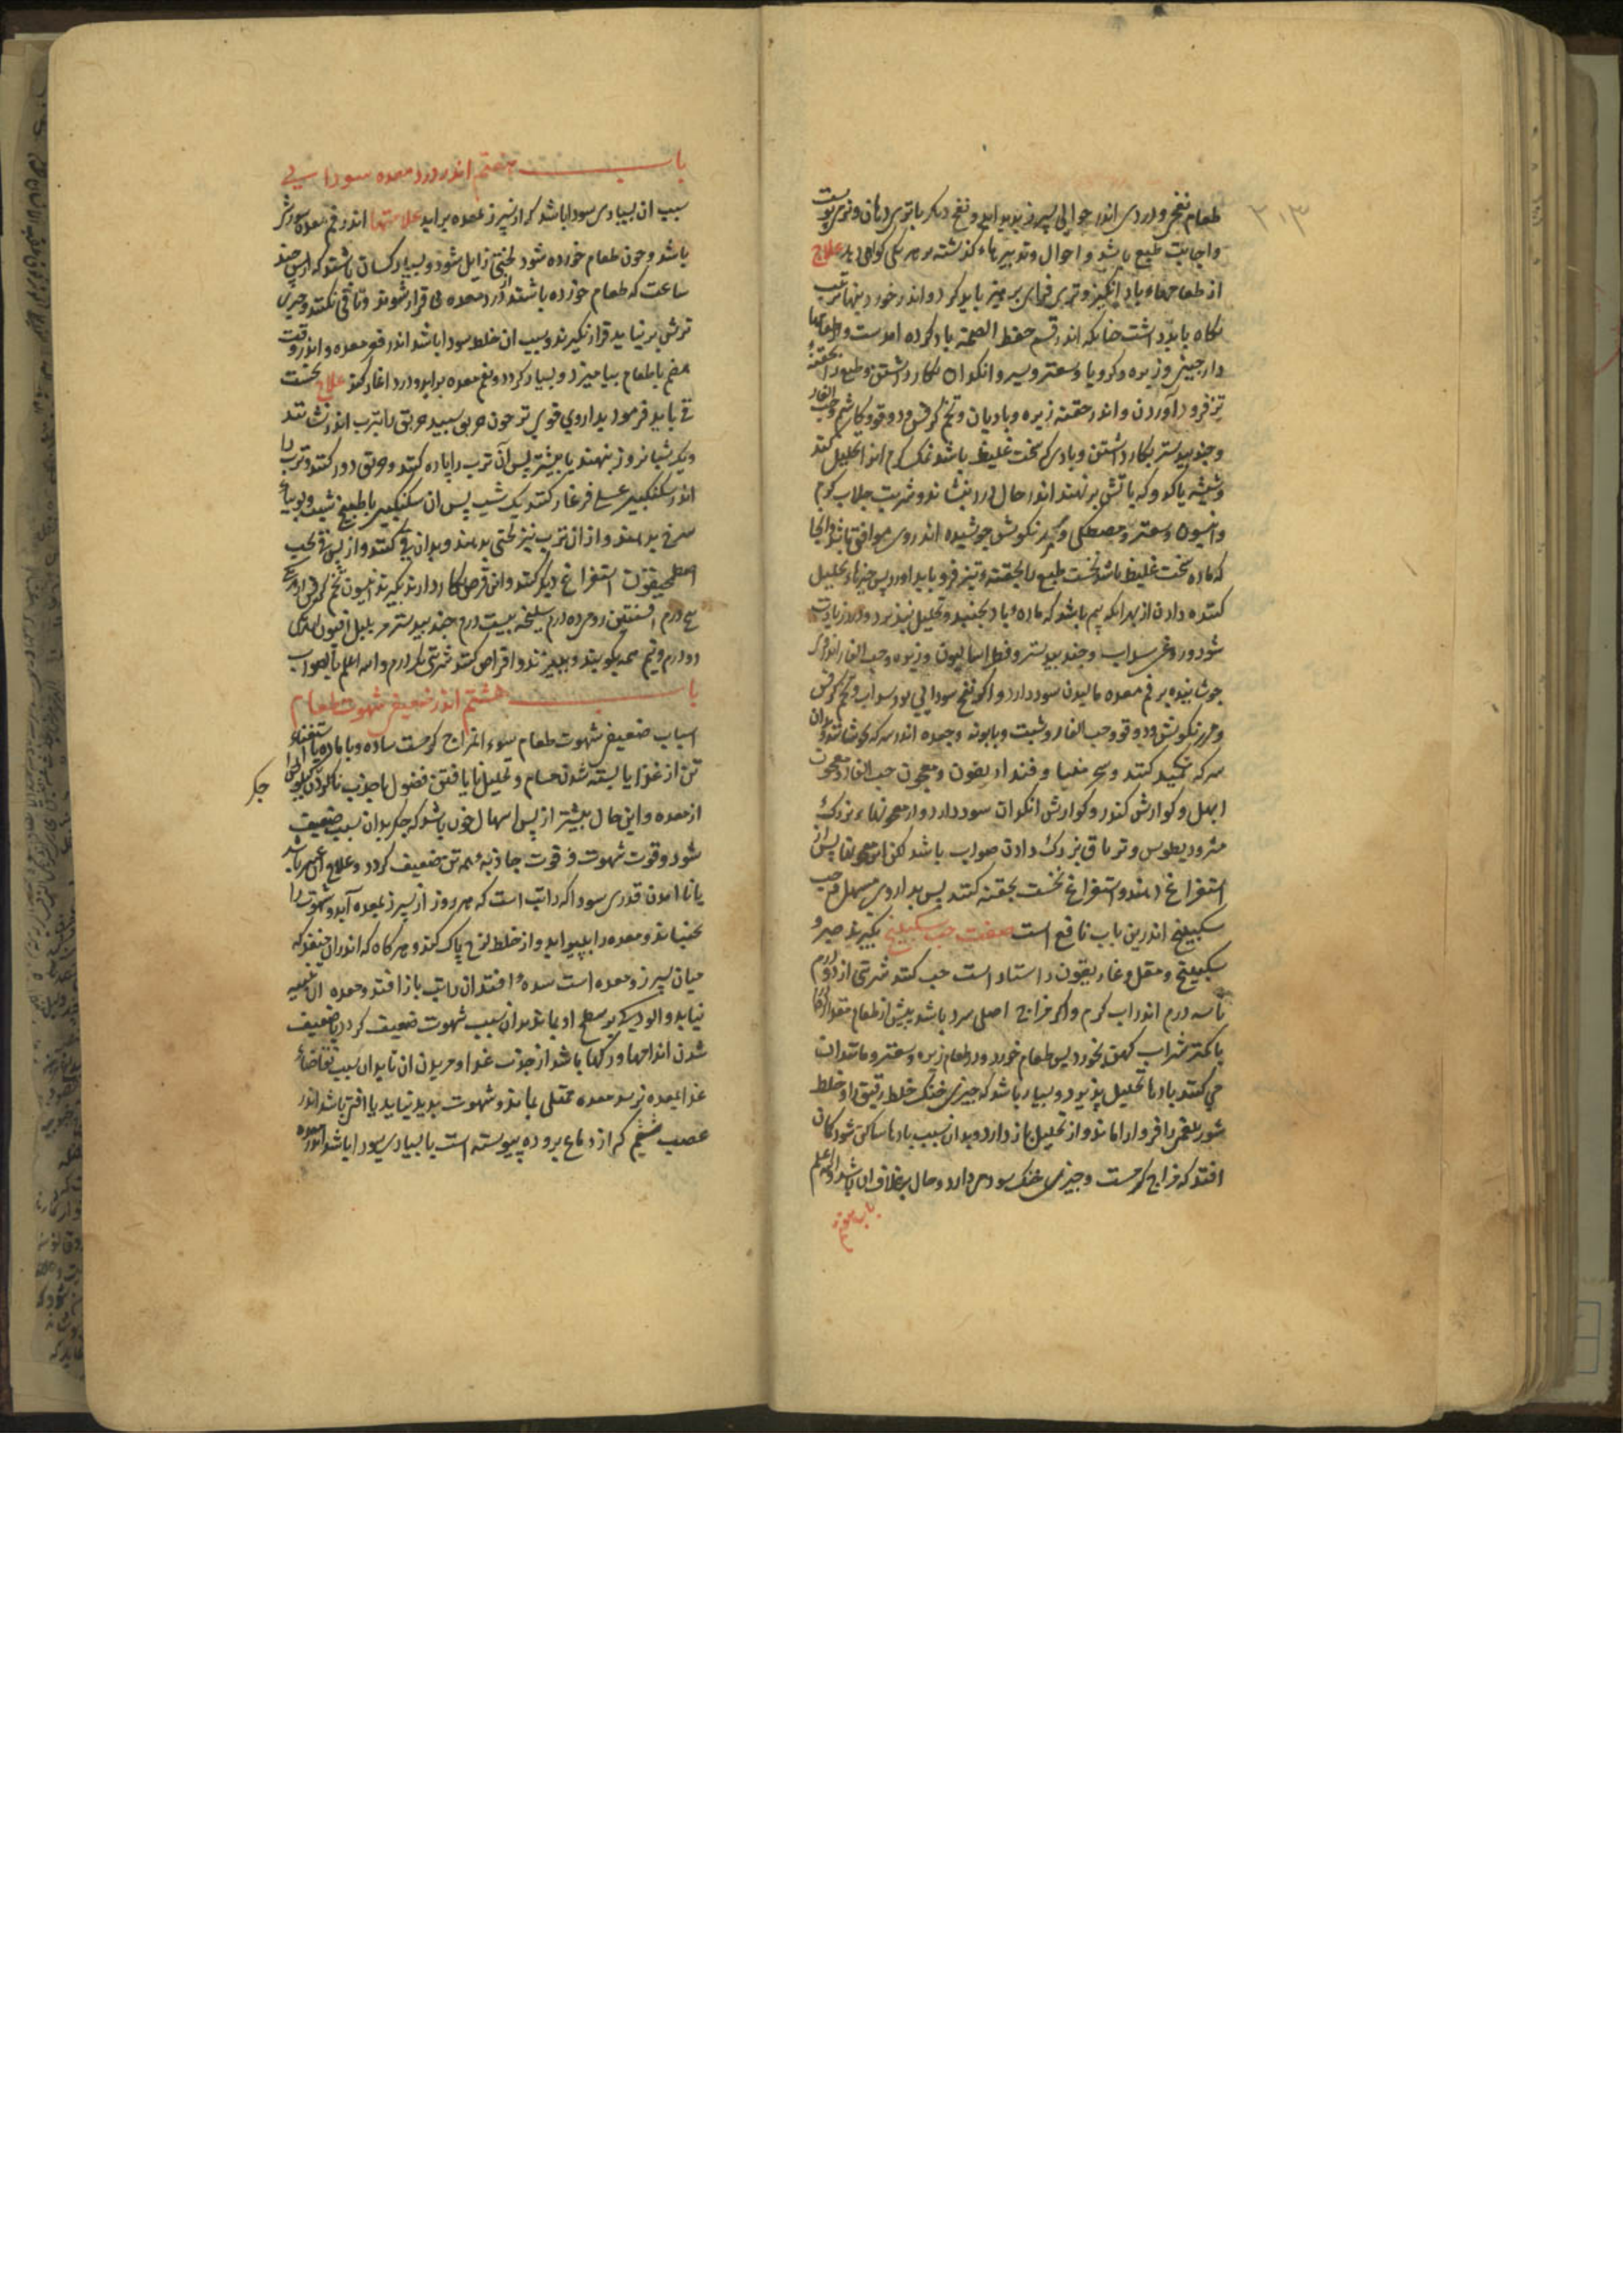 ۳۱۳
طعام نفخ و دردی اندر حوالی سپرز پدید اید و نفخ دیگر با تری دهان و تری پوست
و اجابت طبع باشد و احوال و تدبیرهاء گذشته بر هر یکی گواهی دهد علاج
از طعامهاء باد انگیز و تری فزای پرهیز باید کرد و اندر خوردنیها ترتیب
نگاه باید داشت جنانکه اندر قسم حفظ الصحة یاد کرده امدست و طعامها
دارجینی و زیره و کرویا و سعتر و سیر و انکدان بکار داشتن و طبع را بحقنهٔ
تیز فرود آوردن و اندر حقنه زیره و بادیان و تخم کرفس و دوقو و کاشم و حب الغار
و جندبیدستر بکار داشتن و بادی که سخت غلیظ باشد نمک کرم انرا تحلیل کند
و شیشه یا کدو که باتش برنهند اندر حال درد بنشاند و شربت جلاب کرم
و انیسون و سعتر و مصطکی و جوشیده اندر وی موافق باشد و انجا
که ماده سخت غلیظ باشد نخست طبع را بحقنه و تیز فرو باید اورد پس جیزهاء تحلیل
کننده دادن از بهر انکه بیم باشد که ماده باد بجنبد و تحلیل نپذیرد و درد زیادت
شود و روغن سداب و جندبیدستر و فطراسالیون و زیره و حب الغار اندر وی
جوشانیده بر فم معده مالیدن سود دارد و اکر نفخ سودایی بود سداب و تخم کرفس
و دوقو و حب الغار و شبت و بابونه و جعده اندر سرکه بجوشانند و بدان
سرکه تکمید کنند و سجرنیا و فنداریقون و معجون حب الغار و معجون
ابهل و کوارش کندر و کوارش انکدان سود دارد و از معجونهاء بزرک
مثرودیطوس و تریاق بزرک دادن صواب باشد لکن این معجونها پس از
استفراغ دهند و استفراغ نخست بحقنه کنند پس بداروی مسهل و حب
سکبینج اندرین باب نافع است صفت حب سکبینج بگیرند صبر و
سکبینج و مقل و غاریقون راستاراست حب کنند شربتی از دو درم
تا سه درم اندر اب کرم و اکر مزاج اصلی سرد باشد پیش از طعام مقدار
یا کمتر شراب کهن بخورد پس طعام خورد و در طعام زیره و سعتر و مانند ان
می کنند بادها تحلیل پذیرد و بسیار باشد که جیزی خنک خلط رقیق را و خلط
شور بلغمی را فروداراماند و از تحلیل باز دارد و بدان سبب بادها ساکن شود کمان
افتد که مزاج کرمست و جیزی خنک سود می دارد و حال بر خلاف ان باشد والله اعلم
باب هفتم
باب هفتم اندر درد معده سودایی
سبب ان بسیاری سودا باشد که از سپرز بمعده براید علامتها اندر فم معده سوزش
باشد و جون طعام خورده شود لختی زایل شود و بسیار کسان باشند که از پس جند
ساعت که طعام خورده باشند از درد معده بی قرار شوند و تا قی نکنند و جیزی
ترش برنیاید قرار نگیرند و سبب ان خلط سودا باشد اندر قعر معده و اندر وقت
هضم با طعام بیامیزد و بسیار کردد و بفم معده براید و درد اغاز کند علاج نخست
قی باید فرمود بداروی قوی تر جون خربق سبید خربق را بترب اندر نشانند
و یک شبانروز بنهند یا بیشتر پس آن ترب را پاره کنند و خربق دور کنند و ترب را
اندر سکنکبین عسلی فرغار کنند یک شب پس ان سکنکبین با طبیخ شبت و لوبیاء
سرخ بدهند و از ان ترب نیز لختی بدهند و بدان قی کنند و از پس قی بحب
اصطمخیقون استفراغ دیگر کنند و این قرص بکار دارند بگیرند انیسون تخم کرفس از هر یکی
سه درم افسنتین رومی ده درم سلیخه بیست درم جندبیدستر مر پلپل افیون از هر یکی
دو درم و نیم همه بکوبند و ببیزند و اقراص کنند شربتی یک درم والله اعلم بالصواب
باب هشتم اندر ضعیفی شهوت طعام
اسباب ضعیفی شهوت طعام سوء المزاج کرمست ساده و با ماده یا استغناء
تن از غذا یا بسته شدن مسام و تحلیل نایافتن فضول یا جذب ناکردن کیلوس
جکر
از معده و این حال بیشتر از پس اسهال خون باشد که جکر بدان سبب ضعیف
شود و قوت شهوت و قوت جاذبهٔ همه تن ضعیف کردد و علاج این عسر باشد
یا نا امدن قدری سودا که راتب است که هر روز از سپرز بمعده آید و شهوت را
بجنباند و معده را بپیراید و از خلط لزج پاک کند و هر گاه که اندران منفذ که
میان سپرز و معده است سده افتد ان راتب باز افتد و معده ان
نیابد و الودگی بر سطح او بماند بدان سبب شهوت ضعیف کردد یا ضعیف
شدن اندامها و رکها باشد از جذب غذا و مزیدن ان تا بدان سبب تقاضاء
غذا بمعده نرسد معده ممتلی بماند و شهوت پدید نیاید یا افتی باشد اندر
عصب ششم که از دماغ بروده پیوسته است یا بسیاری سودا باشد اندر معده